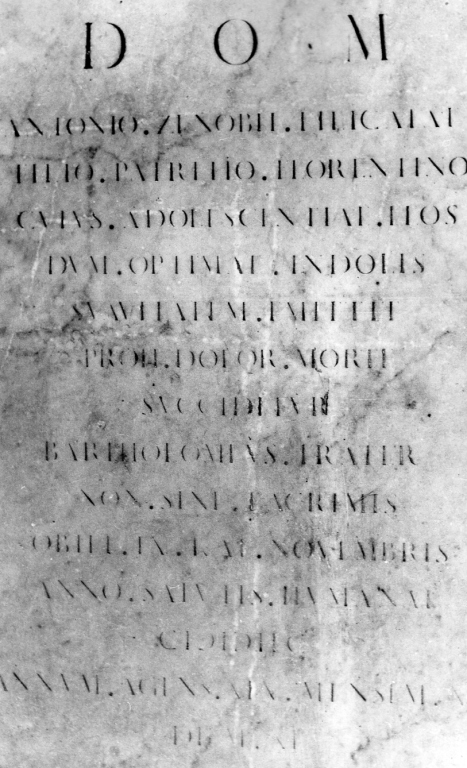 D O M
ANTONIO. ZENOBII. FILICAIAE
FILIO. PATRITIO. FLORENTINO
CVIVS. ADOLESCENTIAE. FLOS
DVM. OPTIMAE. INDOLIS
SVAVITATEM. EMITTIT
PROH. DOLOR. MORTE
SVCCIDITVR
BARTHOLOMEVS. FRATER
NON. SINE. LACRIMIS
OBIIT. IX. KAL. NOVEMBRIS
ANNO. SALVTIS. HVMANAE
ANNVM. AGENS. XIX. MENSEM.
DIEM. XI